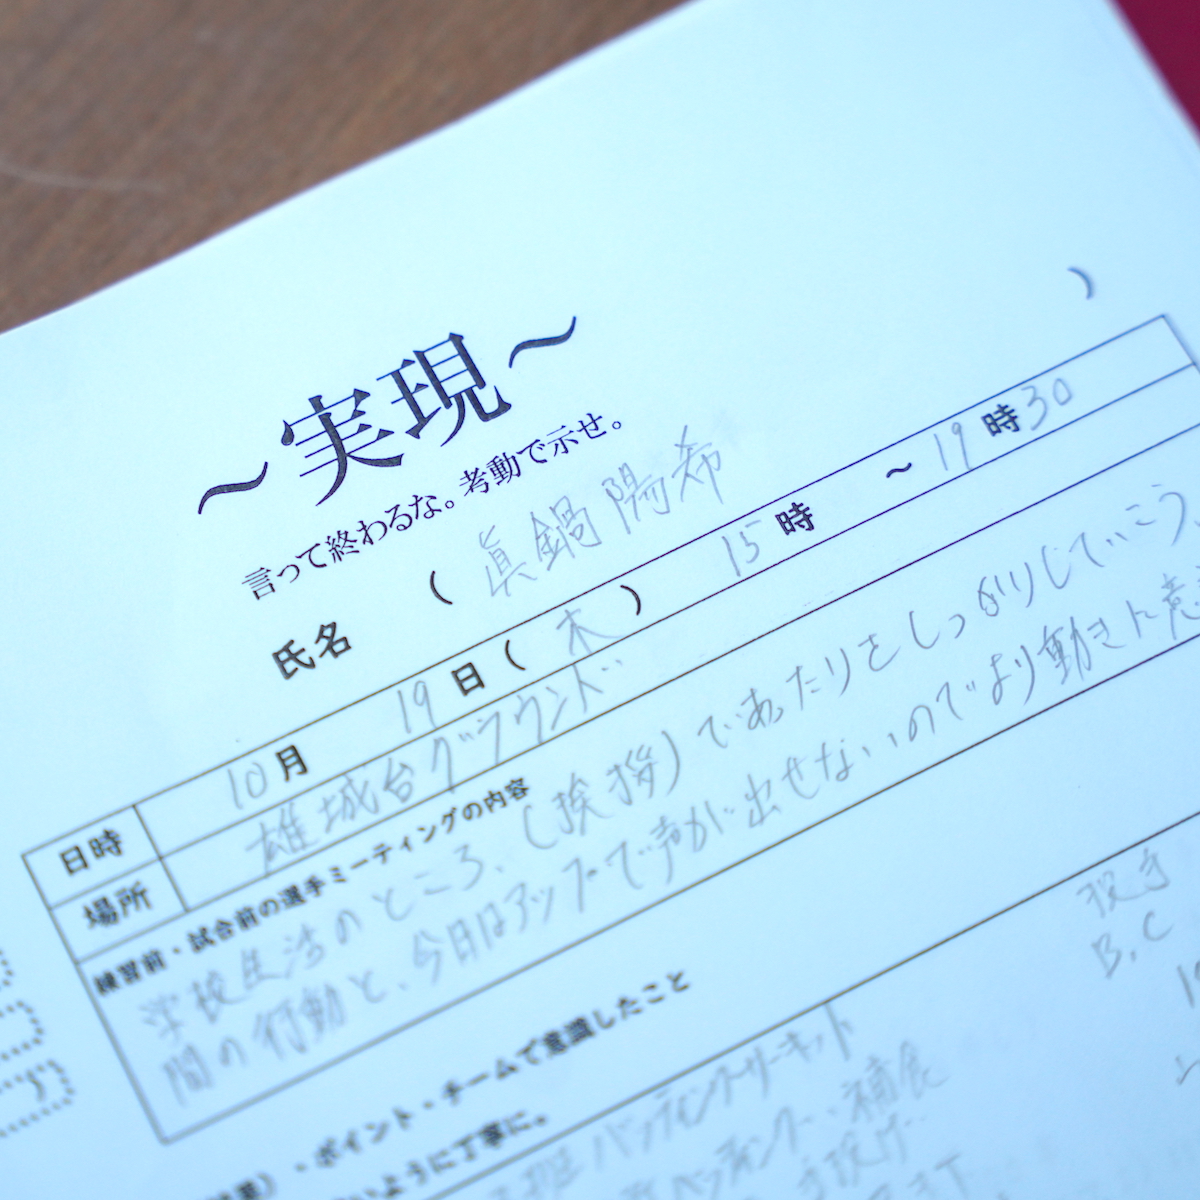 ～実現～
言って終わるな。考動で示せ。
氏名 ( 眞鍋陽希 )
日時 10月 19日 ( 木 ) 15時 ～ 19時30
場所 雄城台グラウンド
練習前・試合前の選手ミーティングの内容
学校生活のところ、(挨拶)であったりをしっかりしていこう。
間の行動と、今日はアップで声が出せないのでより動きに意
・ポイント・チームで意識したこと
いように丁寧に。
投手
B,C
班 バッティングサーキット
補食